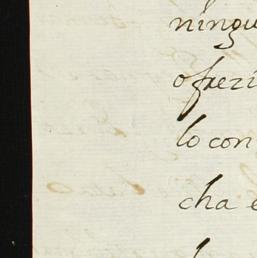 ningu
ofrezi
lo con
cha e